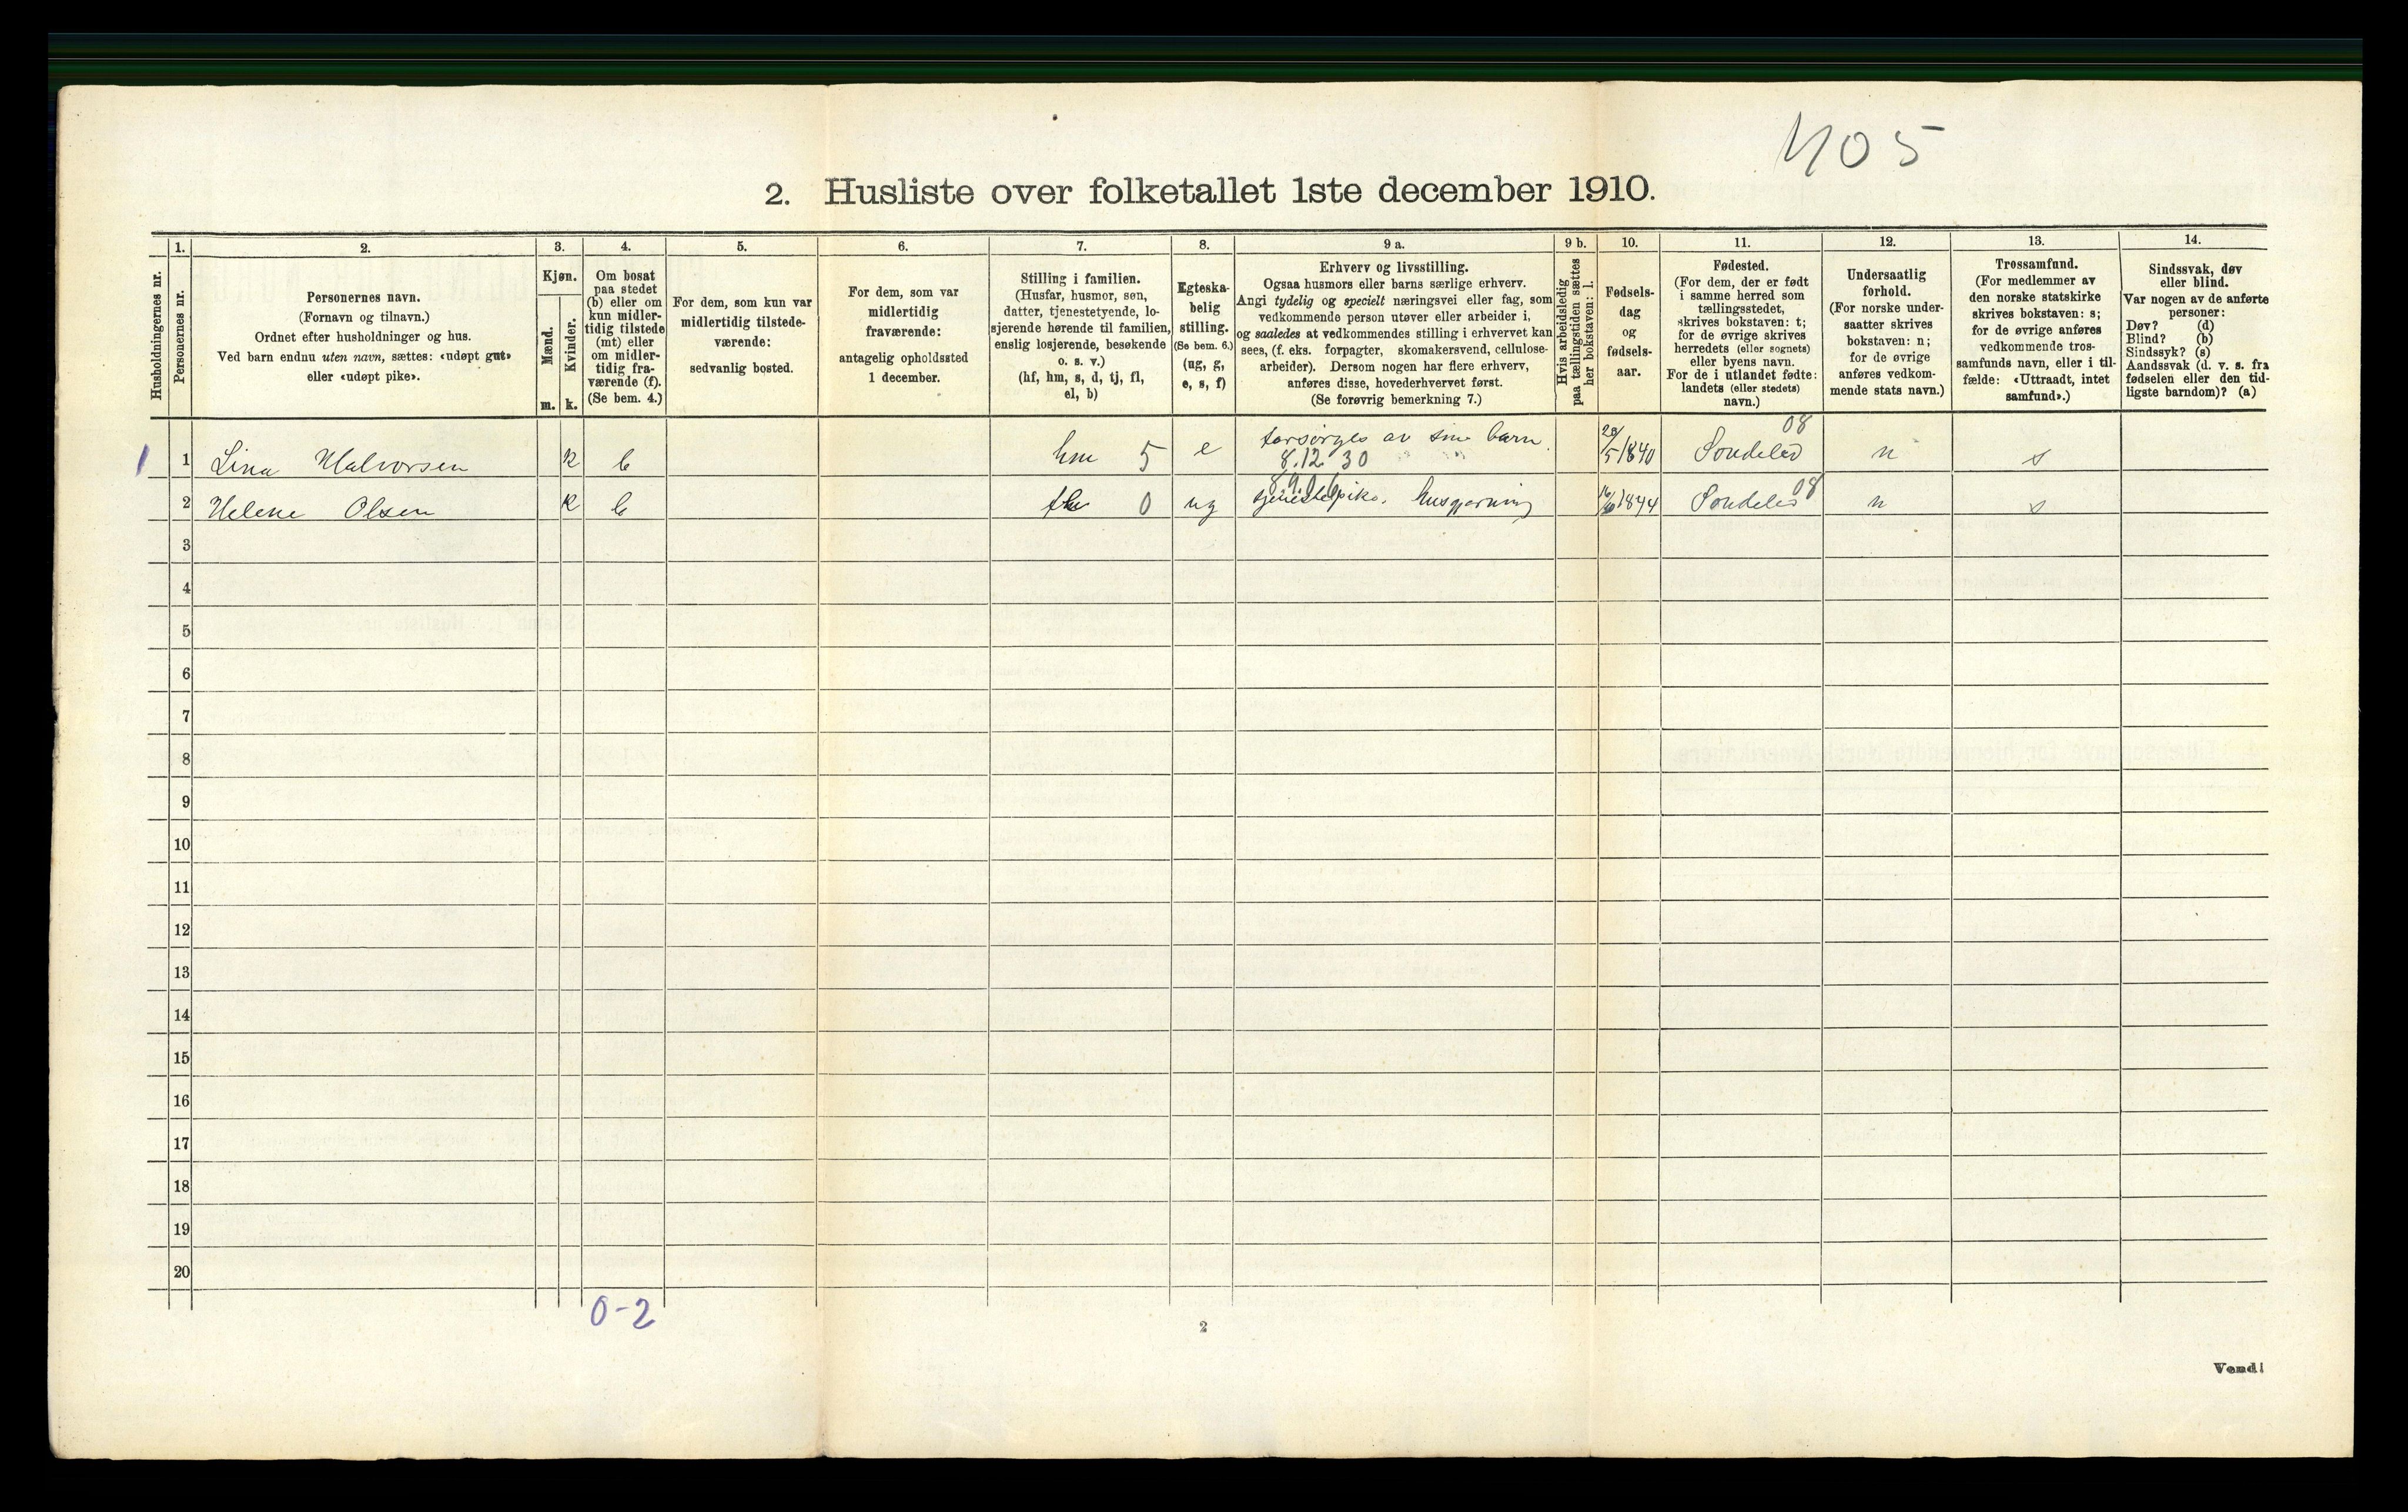 405
2. Husliste over folketallet 1ste december 1910.
Husholdningernes nr.
1.
Personernes nr.
2.
Personernes navn.
(Fornavn og tilnavn.)
Ordnet efter husholdninger og hus.
Ved barn endnu uten navn, sættes: «udøpt gut»
eller «udøpt pike».
3.
Kjøn.
Mænd.
Kvinder.
m. k.
4.
Om bosat
paa stedet
(b) eller om
kun midler-
tidig tilstede
(mt) eller
om midler-
tidig fra-
værende (f).
(Se bem. 4.)
5.
For dem, som kun var
midlertidig tilstede-
værende:
sedvanlig bosted.
6.
For dem, som var
midlertidig
fraværende:
antagelig opholdssted
1 december.
7.
Stilling i familien.
(Husfar, husmor, søn,
datter, tjenestetyende, lo-
sjerende hørende til familien,
enslig losjerende, besøkende
o. s. v.)
(hf, hm, s, d, tj, fl,
el, b)
8.
Egteska-
belig
stilling.
(Se bem. 6.)
(ug, g,
e, s, f)
9 a.
Erhverv og livsstilling.
Ogsaa husmors eller barns særlige erhverv.
Angi tydelig og specielt næringsvei eller fag, som
vedkommende person utøver eller arbeider i,
og saaledes at vedkommendes stilling i erhvervet kan
sees, (f. eks. forpagter, skomakersvend, cellulose-
arbeider). Dersom nogen har flere erhverv,
anføres disse, hovederhvervet først.
(Se forøvrig bemerkning 7.)
9 b.
Hvis arbeidsledig
paa tællingstiden sættes
her bokstaven: l.
10.
Fødsels-
dag
og
fødsels-
aar.
11.
Fødested.
(For dem, der er født
i samme herred som
tællingsstedet,
skrives bokstaven: t;
for de øvrige skrives
herredets (eller sognets)
eller byens navn.
For de i utlandet fødte:
landets (eller stedets)
navn.)
12.
Undersaatlig
forhold.
(For norske under-
saatter skrives
bokstaven: n;
for de øvrige
anføres vedkom-
mende stats navn.)
13.
Trossamfund.
(For medlemmer av
den norske statskirke
skrives bokstaven: s;
for de øvrige anføres
vedkommende tros-
samfunds navn, eller i til-
fælde: «Uttraadt, intet
samfund».)
14.
Sindssvak, døv
eller blind.
Var nogen av de anførte
personer:
Døv? (d)
Blind? (b)
Sindssyk? (s)
Aandssvak (d. v. s. fra
fødselen eller den tid-
ligste barndom)? (a)
1 1 Lina Halvorsen k b hm 5 e forsørges av sine barn 8.12 30 /5 1840 Søndeled 08 n s
2 Helene Olsen k b 0 ug tjenestepike. husgjerning 1844 Søndeled 08 n s
3
4
5
6
7
8
9
10
11
12
13
14
15
16
17
18
19
20
0-2
2
Vend!